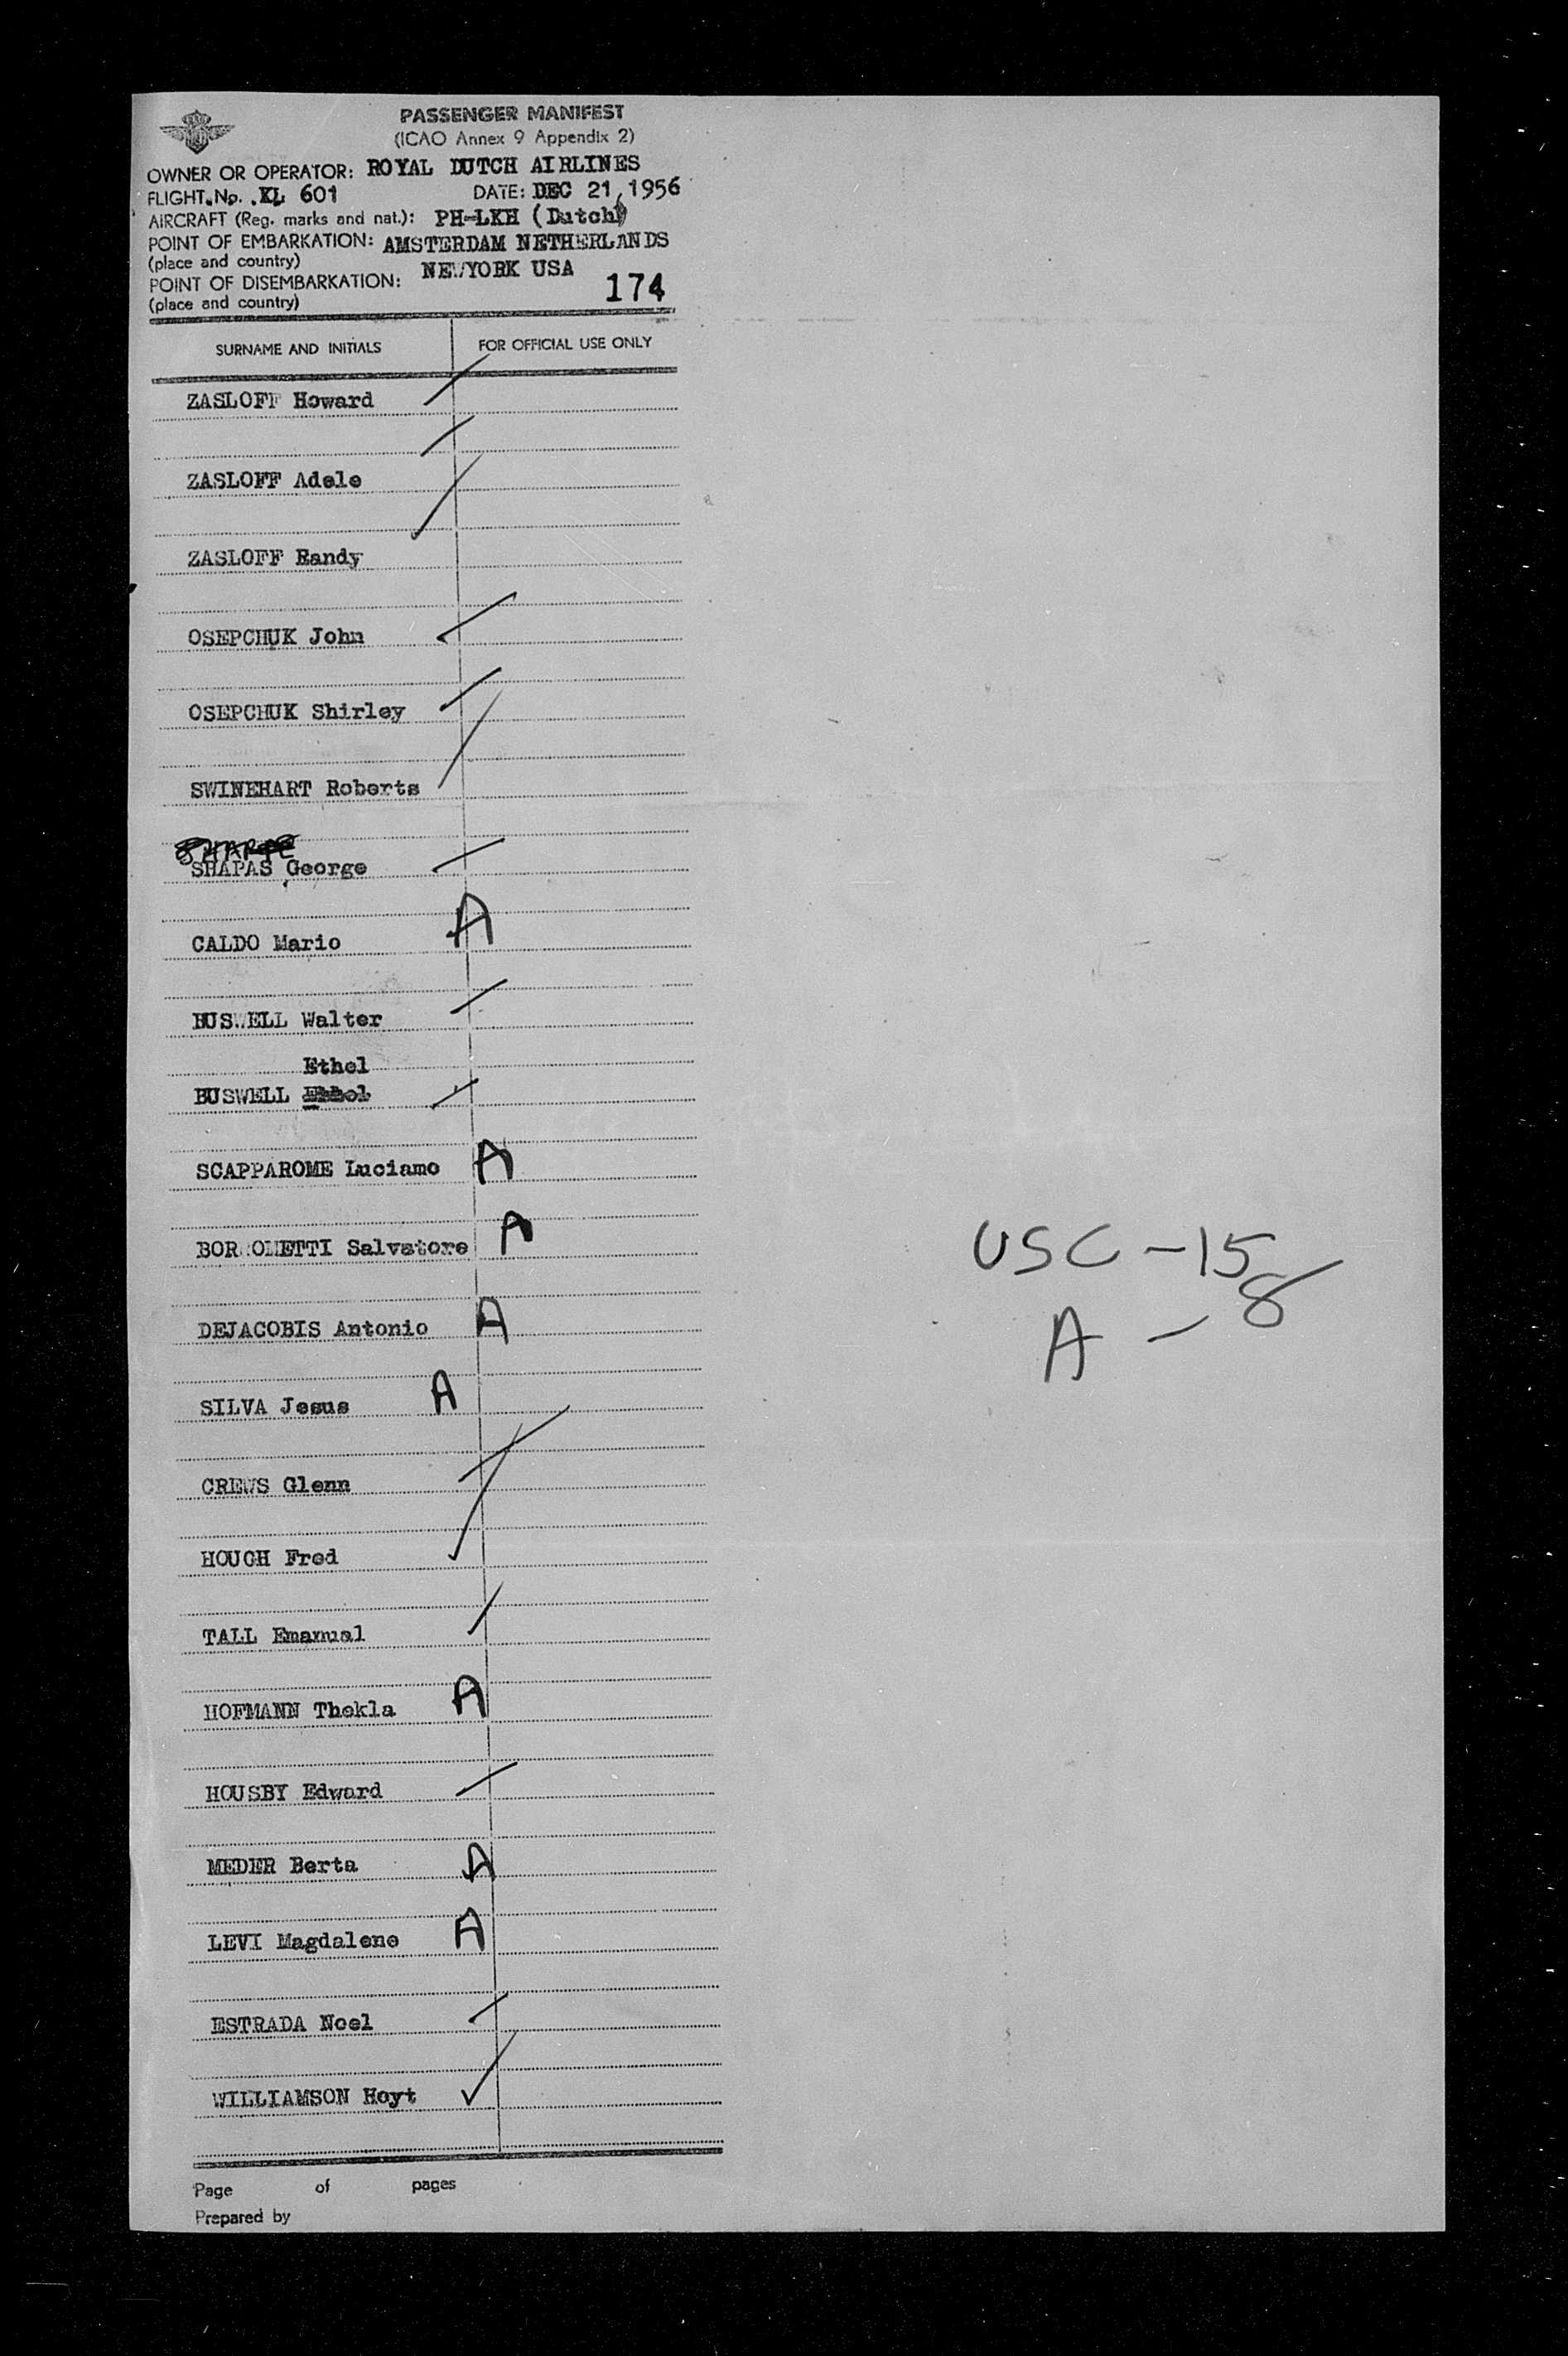 PASSENGER MANIFEST
(ICAO Annex 9 Appendix 2)
OWNER OR OPERATOR: ROYAL DUTCH AIRLINES
FLIGHT. No. .KL 601 DATE: DEC 21,1956
AIRCRAFT (Reg. marks and nat.): PH-LKH (Dutch)
POINT OF EMBARKATION: AMSTERDAM NETHERLANDS
(place and country)
POINT OF DISEMBARKATION: NEWYORK USA
(place and country) 174
SURNAME AND INITIALS FOR OFFICIAL USE ONLY
ZASLOFF Howard
ZASLOFF Adele
ZASLOFF Randy
OSEPCHUK John
OSEPCHUK Shirley
SWINEHART Roberts
SHAPAS George
CALDO Mario A
BUSWELL Walter
Ethel
BUSWELL
SCAPPAROME Luciamo A
Salvatore A
DEJACOBIS Antonio A
SILVA Jesus A
CREWS Glenn
HOUGH Fred
TALL Emanual
HOFMANN Thekla A
HOUSBY Edward
MEDER Berta A
LEVI Magdalene A
ESTRADA Noel
WILLIAMSON Hoyt
USC - 15
A - 8
Page of pages
Prepared by